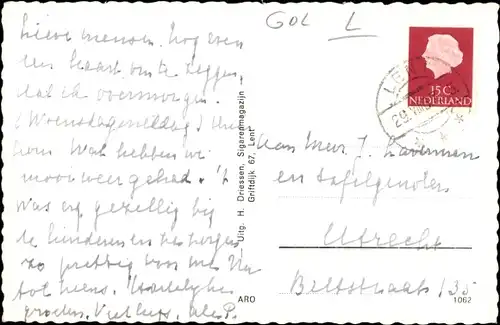 lieve mensen. Nog even
een kaart om te zeggen,
dat ik overmorgen
(Woensdagmiddag)
kom. Wat hebben we
mooi weer gehad. 't
Was erg gezellig bij
de kinderen en
zo prettig voor me.
tot ziens. Hartelijke
groeten.
GOL L
15 C
NEDERLAND
LENT
Aan Mevr. J.
en tafelgenoten
Utrecht
Biltstraat 135
Uitg. H. Driessen, Sigarenmagazijn
Griftdijk 67, Lent
ARO
1062